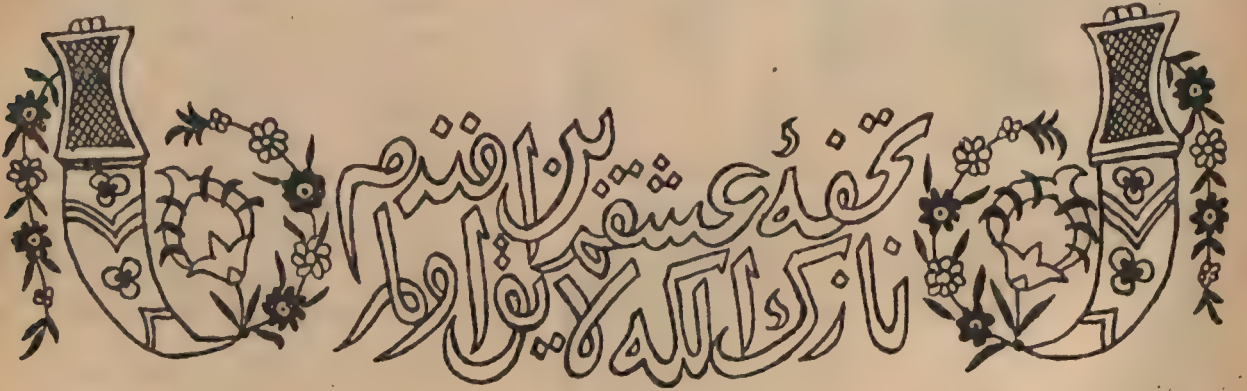 تحفهٔ عشقم بن افندم
نازك الكه لايق اولر